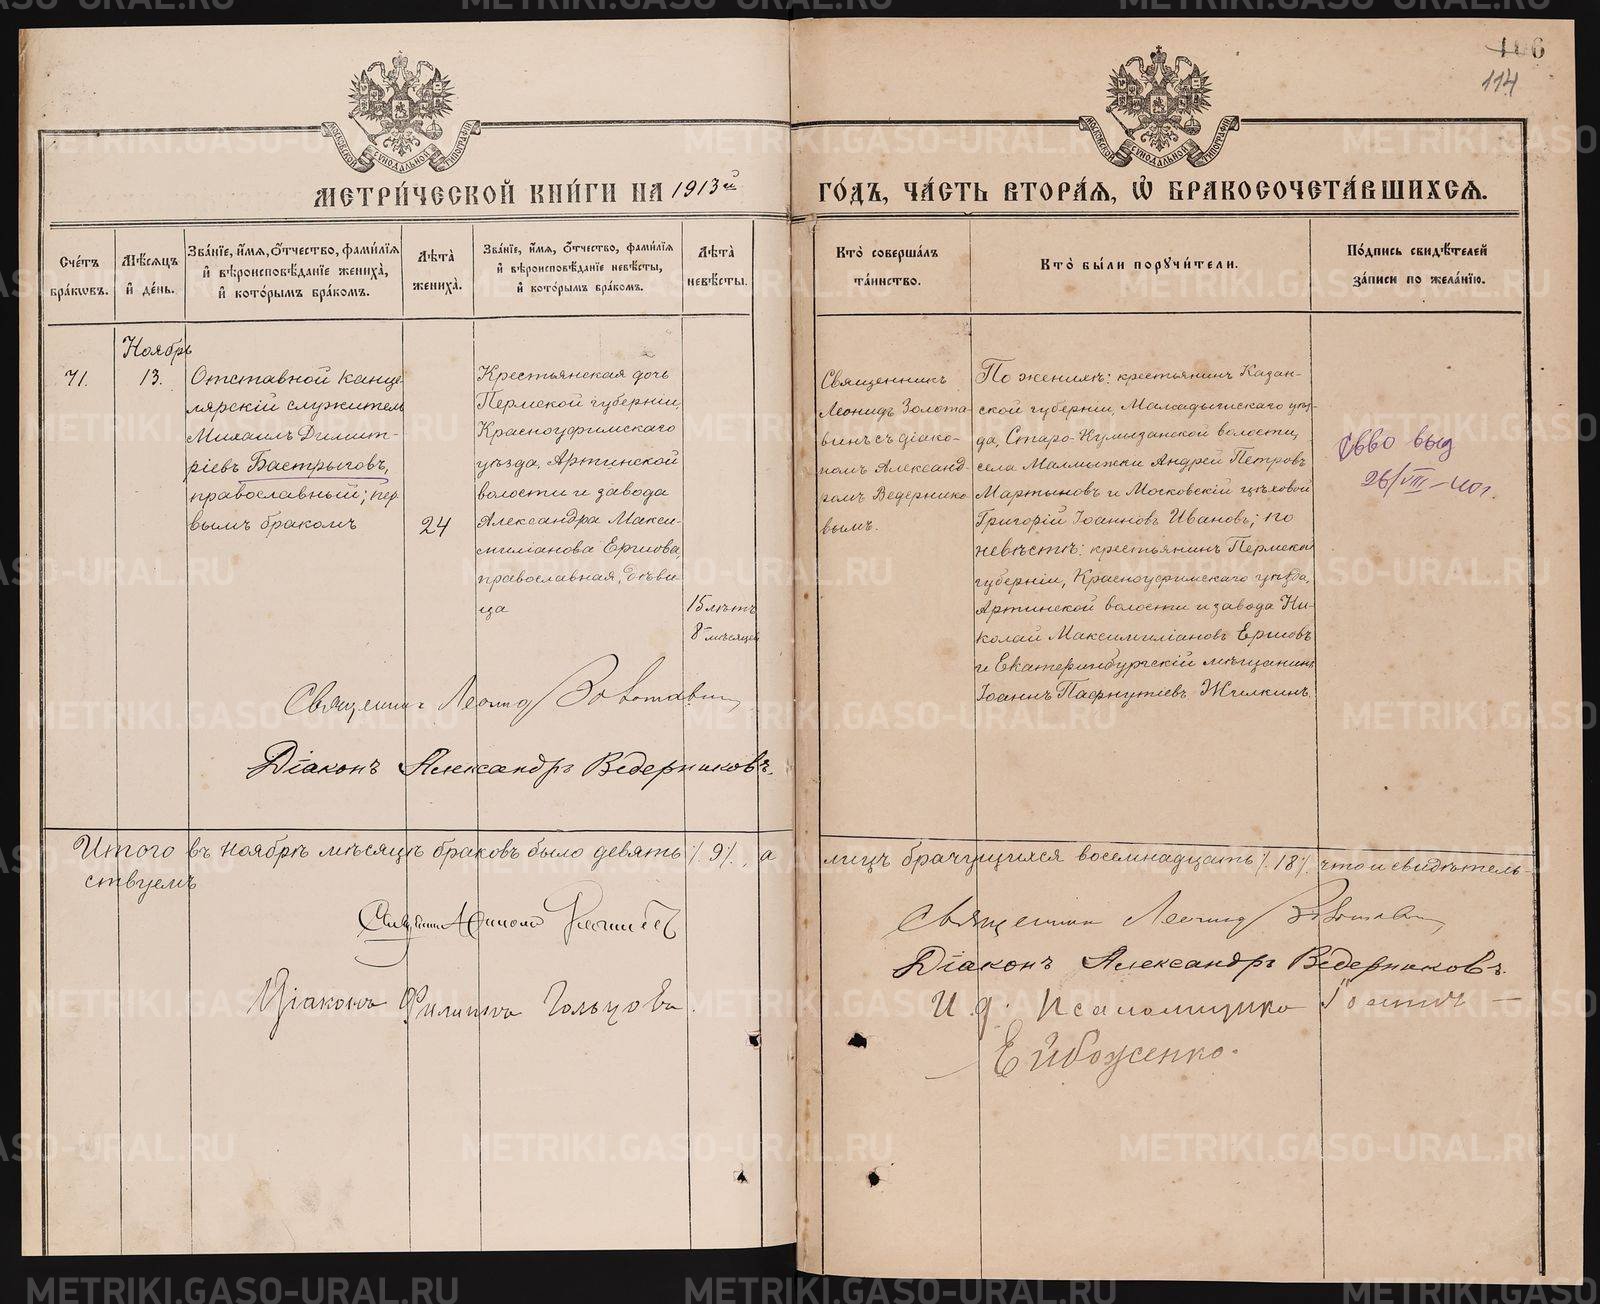 106
114
МОСКОВСКОЙ СѴНОДАЛЬНОЙ ТИПОГРАФІИ
МОСКОВСКОЙ СѴНОДАЛЬНОЙ ТИПОГРАФІИ
МЕТРИ́ЧЕСКОЙ КНИ́ГИ НА 1913й
ГО́ДЪ, ЧА́СТЬ ВТОРА́Я, Ѡ҆ БРАКОСОЧЕТА́ВШИХСЯ.
Сче́тъ
бра́кѡвъ.
Мѣ́сяцъ
и҆ де́нь.
Зва́нїе, и҆́мя, о҆́тчество, фами́лїя
и҆ вѣроисповѣ́данїе жениха̀,
и҆ кото́рымъ бра́комъ.
Лѣ́та
жениха̀.
Зва́нїе, и҆́мя, о҆́тчество, фами́лїя
и҆ вѣроисповѣ́данїе невѣ́сты,
и҆ кото́рымъ бра́комъ.
Лѣ́та
невѣ́сты.
Кто̀ соверша́лъ
та́инство.
Кто̀ бы́ли поручи́тели.
По́дпись свидѣ́телей
за́писи по жела́нїю.
71.
Ноябрь
13.
Отставной канце-
лярскій служитель
Михаилъ Димит-
ріевъ Бастрыговъ,
православный; пер-
вымъ бракомъ
24
Крестьянская дочь
Пермской губерніи,
Красноуфимскаго
уѣзда, Артинской
волости и завода
Александра Макси-
миліанова Ершова,
православная, дѣви-
ца
15 лѣтъ
8 мѣсяцей
Священникъ
Леонидъ Золота-
винъ съ діако-
номъ Александ-
ромъ Ведернико-
вымъ.
По женихѣ: крестьянинъ Казан-
ской губерніи, Мамадышскаго уѣз-
да, Старо-Кумазанской волости,
села Малмыжки Андрей Петровъ
Мартыновъ и Московскій цѣховой
Григорій Іоанновъ Ивановъ; по
невѣстѣ: крестьянинъ Пермской
губерніи, Красноуфимскаго уѣзда,
Артинской волости и завода Ни-
колай Максимиліановъ Ершовъ
и Екатеринбургскій мѣщанинъ
Іоаннъ Пафнутіевъ Жилкинъ.
Св-во выд
26/VIII-40 г.
Священникъ Леонид Золотавин
Діаконъ Александръ Ведерниковъ.
Итого въ ноябрѣ мѣсяцѣ браковъ было девять /.9/., а
лицъ брачущихся восемнадцать /.18/. что и свидѣтель-
ствуемъ
Священник Леонид Золотавин
Діаконъ Александръ Ведерниковъ.
Діаконъ Филиппъ Гольцовъ.
И. д. Псаломщика Іоаннъ
Ейбоженко.
METRIKI.GASO-URAL.RU